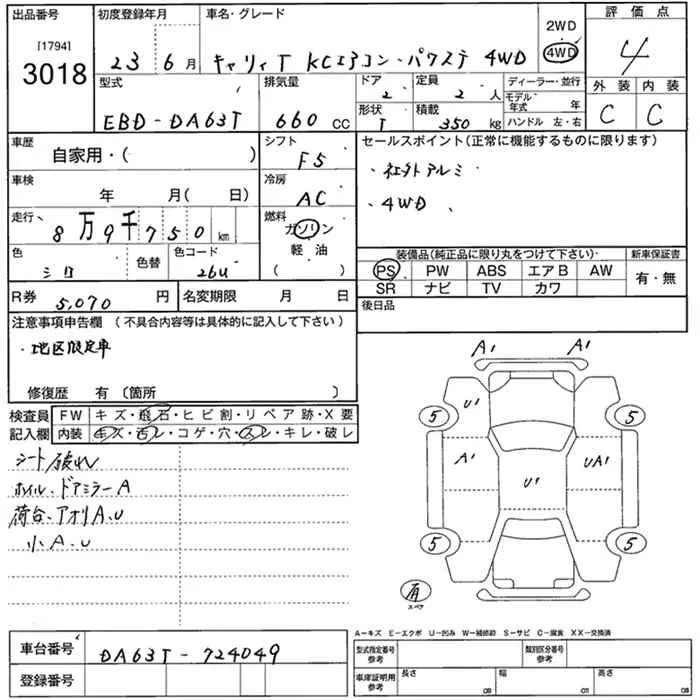 出品番号 初度登録年月 車名・グレード 2WD 評価点
[1794] 3018 23 6月 キャリィT KCエアコン・パワステ 4WD 4WD 4
型式 排気量 ドア 定員 ディーラー・並行 外装 内装
2 2人 モデル年式 年
EBD-DA63T 660cc 形状 T 積載 350kg ハンドル 左・右 C C
車歴 自家用・( ) シフト F5 セールスポイント(正常に機能するものに限ります)
車検 年 月( 日) 冷房 AC ・社外アルミ
・4WD
走行 8万9千750km 燃料 ガソリン
軽油
( )
色 シロ 色替 色コード 26U 装備品(純正品に限り丸をつけて下さい) 新車保証書
PS PW ABS エアB AW 有・無
SR ナビ TV カワ
R券 5,070円 名変期限 月 日 後日品
注意事項申告欄(不具合内容等は具体的に記入して下さい)
・地区限定車
修復歴 有〔箇所 〕
検査員 FW キズ・飛石・ヒビ割・リペア跡・X要
記入欄 内装 キズ・汚レ・コゲ・穴・スレ・キレ・破レ
シート破れ
ホイル、ドアミラーA
荷台、アオリA、U
小A、U
A' A'
U'
5 5
A' U' UA'
5 5
有
スペア
A-キズ E-エクボ U-凹み W-補修跡 S-サビ C-腐食 XX-交換済
車台番号 DA63T-724049 型式指定番号 参考 類別区分番号 参考
登録番号 車庫証明用 参考 長さ cm 幅 cm 高さ cm